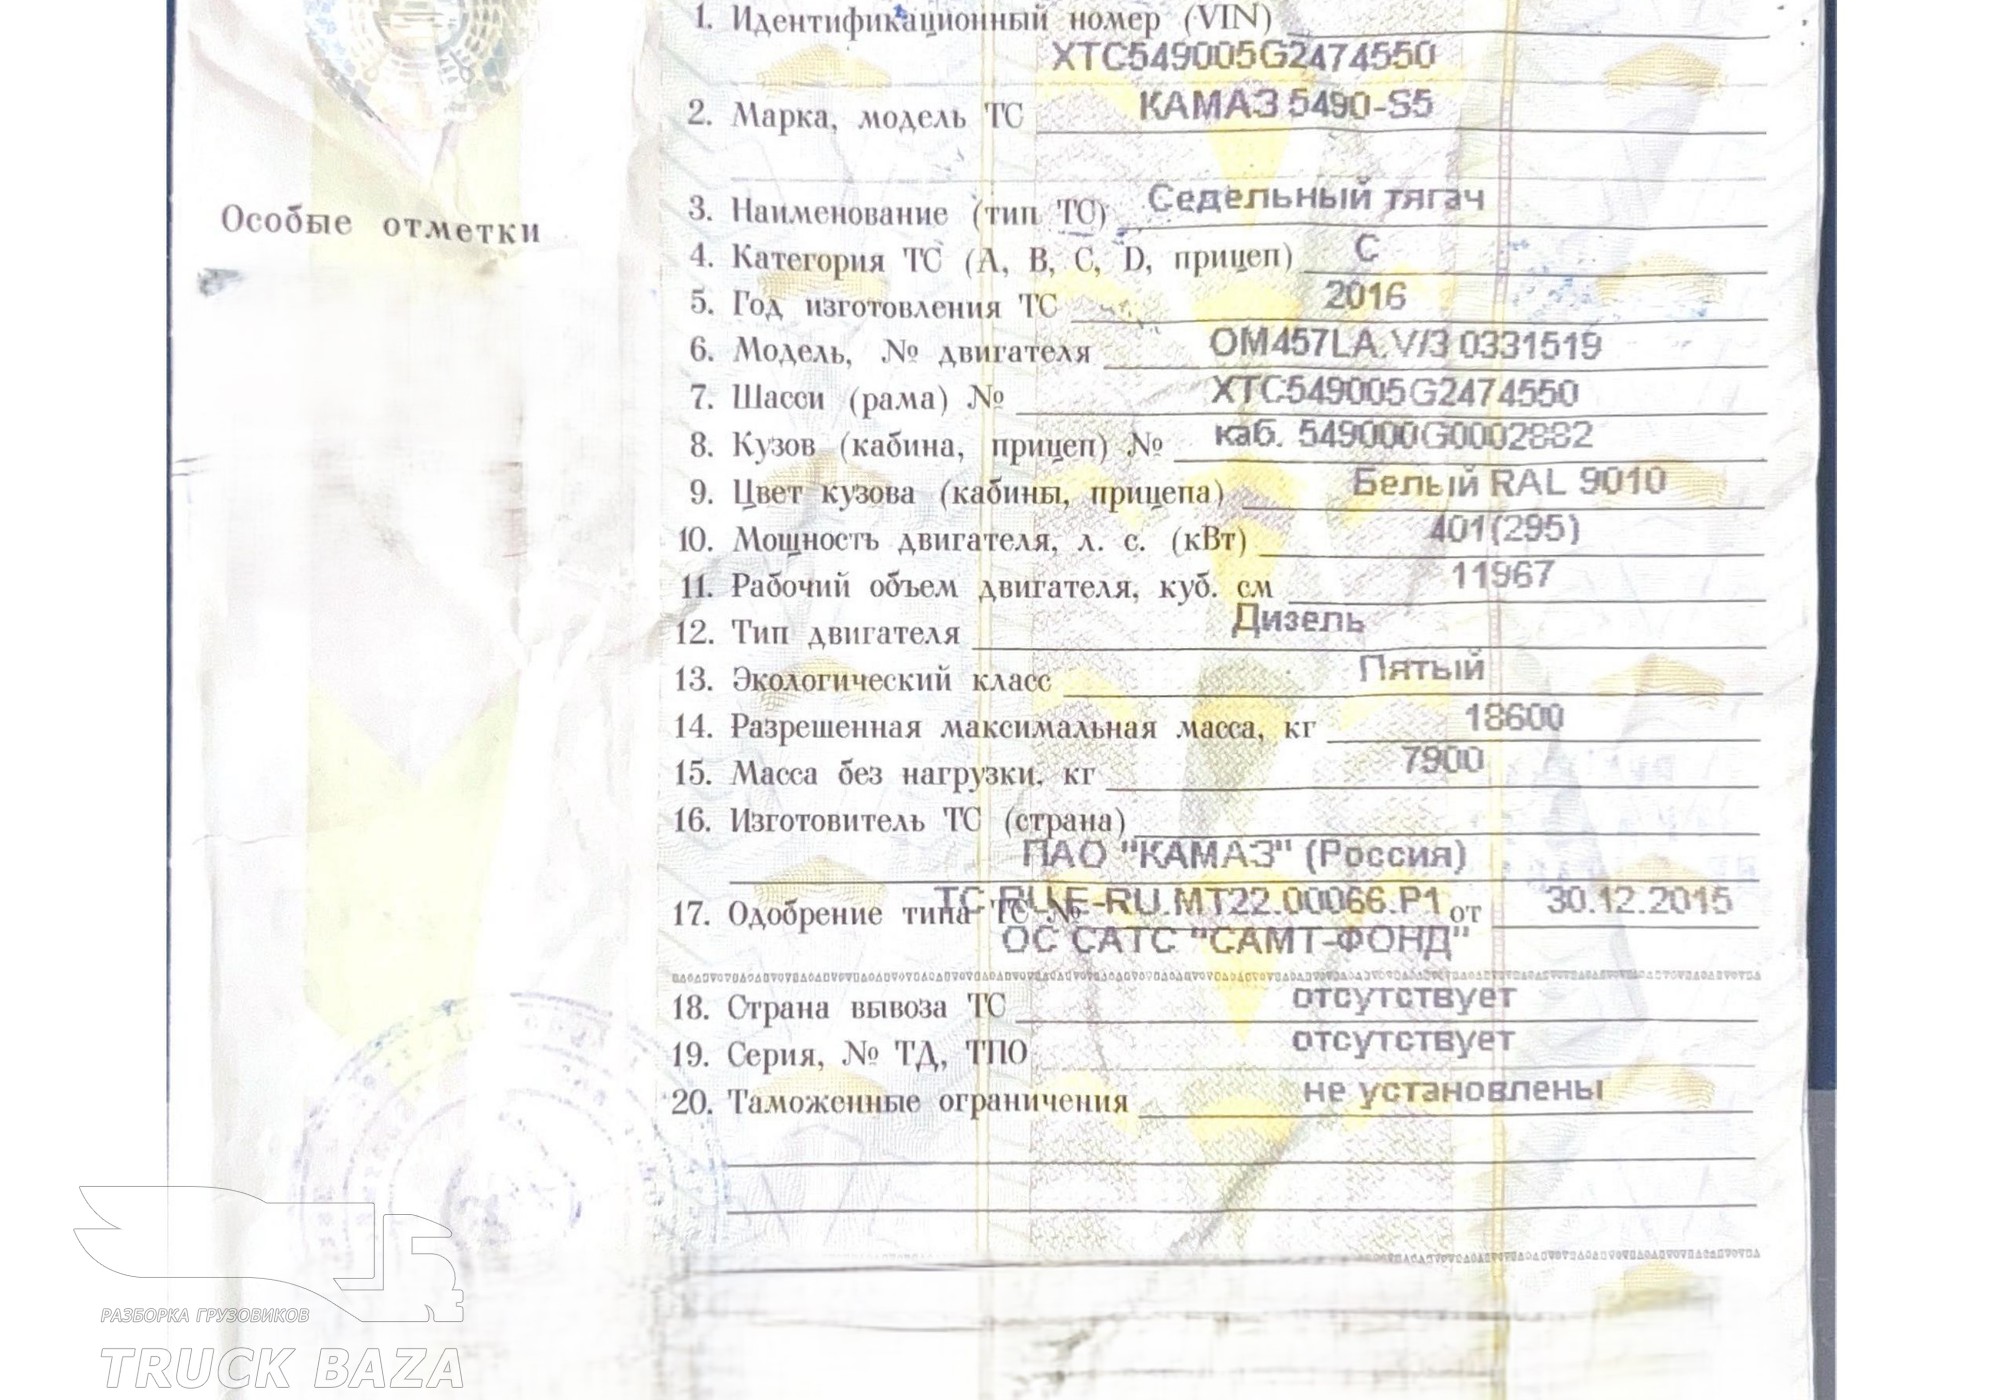 1. Идентификационный номер (VIN)
XTC549005G2474550
2. Марка, модель ТС КАМАЗ 5490-S5
Особые отметки
3. Наименование (тип ТС) Седельный тягач
4. Категория ТС (A, B, C, D, прицеп) C
5. Год изготовления ТС 2016
6. Модель, № двигателя OM457LA.V/3 0331519
7. Шасси (рама) № XTC549005G2474550
8. Кузов (кабина, прицеп) № каб. 549000G0002882
9. Цвет кузова (кабины, прицепа) Белый RAL 9010
10. Мощность двигателя, л. с. (кВт) 401(295)
11. Рабочий объем двигателя, куб. см 11967
12. Тип двигателя Дизель
13. Экологический класс Пятый
14. Разрешенная максимальная масса, кг 18600
15. Масса без нагрузки, кг 7900
16. Изготовитель ТС (страна)
ПАО "КАМАЗ" (Россия)
17. Одобрение типа ТС № ТС RU E-RU.MT22.00066.P1 от 30.12.2015
ОС САТС "САМТ-ФОНД"
18. Страна вывоза ТС отсутствует
19. Серия, № ТД, ТПО отсутствует
20. Таможенные ограничения не установлены
РАЗБОРКА ГРУЗОВИКОВ
TRUCK BAZA